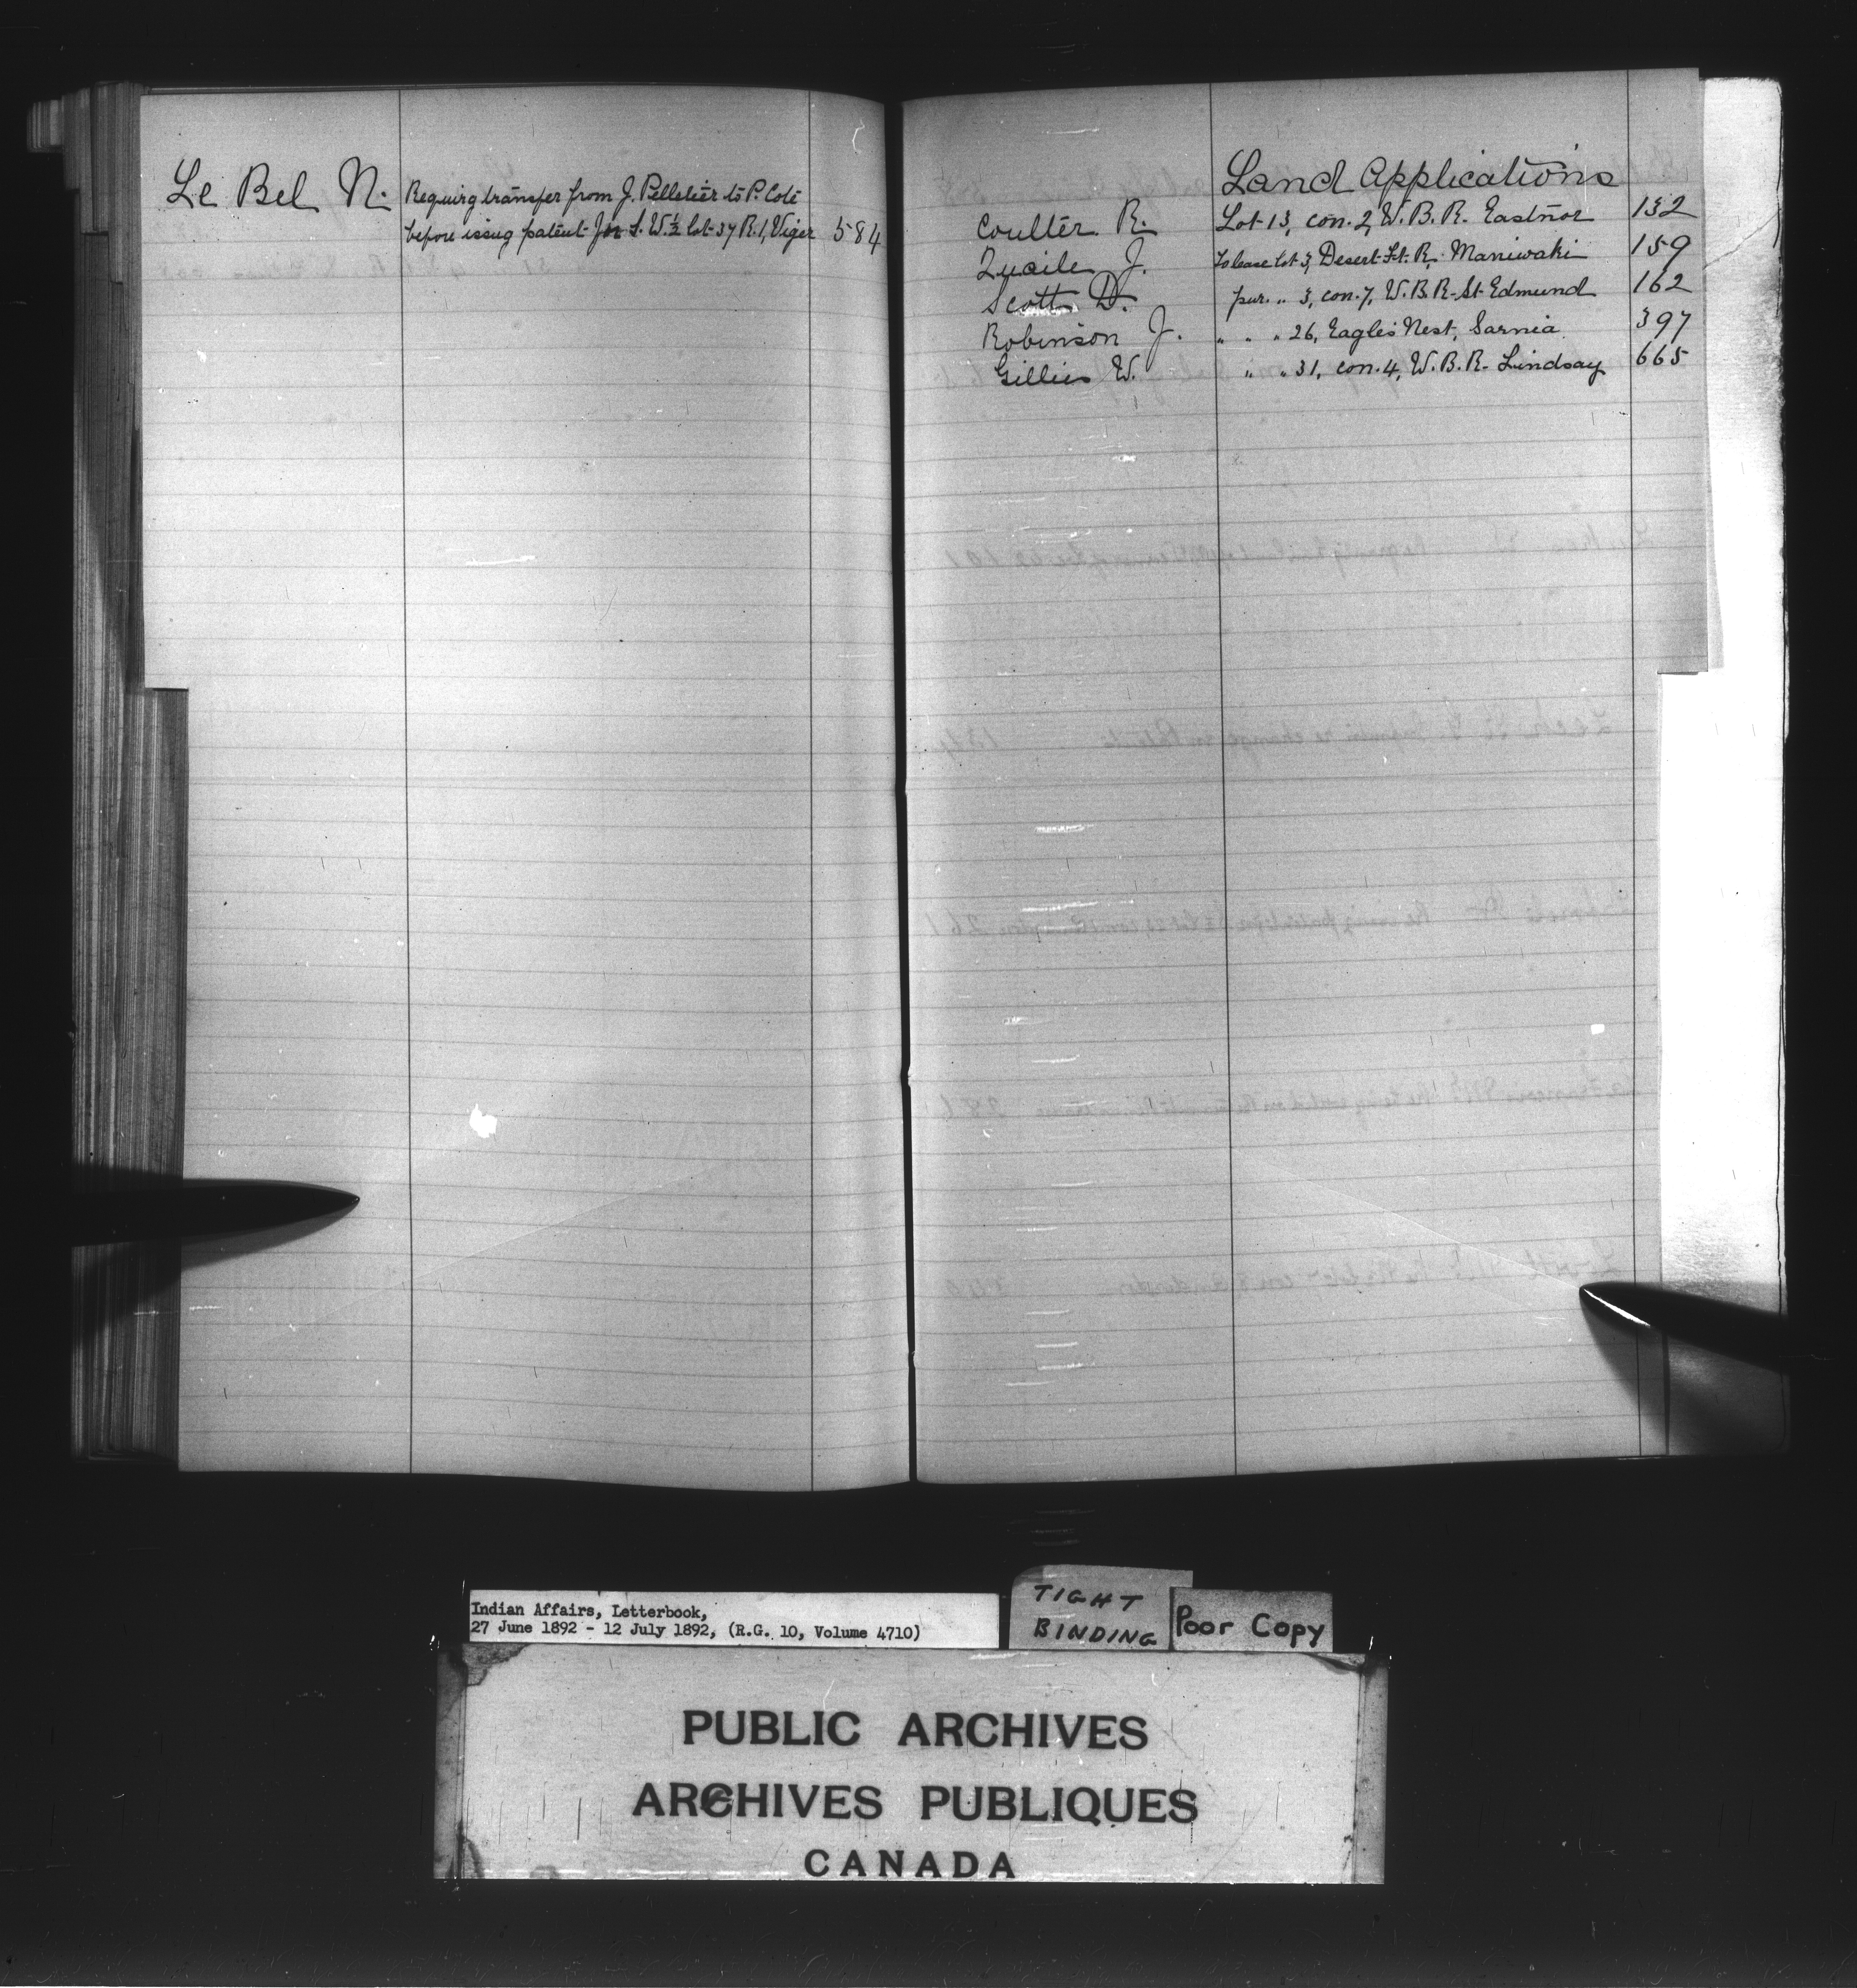 Le Bel N. Requirg transfer from J. Pelletier to P. Coté
before issug patent for S.W. ½ lot 37 R.1, Viger 584
Land Applications
Coulter R. Lot 13, con. 2, W.B.R. Eastnor 132
J. To lease lot 3, Desert Ft. R. Maniwaki 159
Scott D. pur. " 3, con. 7, W.B.R. St Edmund 162
Robinson J. " " " 26, Eagles Nest, Sarnia 397
Gillies W. " " 31, con. 4, W.B.R. Lindsay 665
Indian Affairs, Letterbook,
27 June 1892 - 12 July 1892, (R.G. 10, Volume 4710)
TIGHT
BINDING
Poor Copy
PUBLIC ARCHIVES
ARCHIVES PUBLIQUES
CANADA